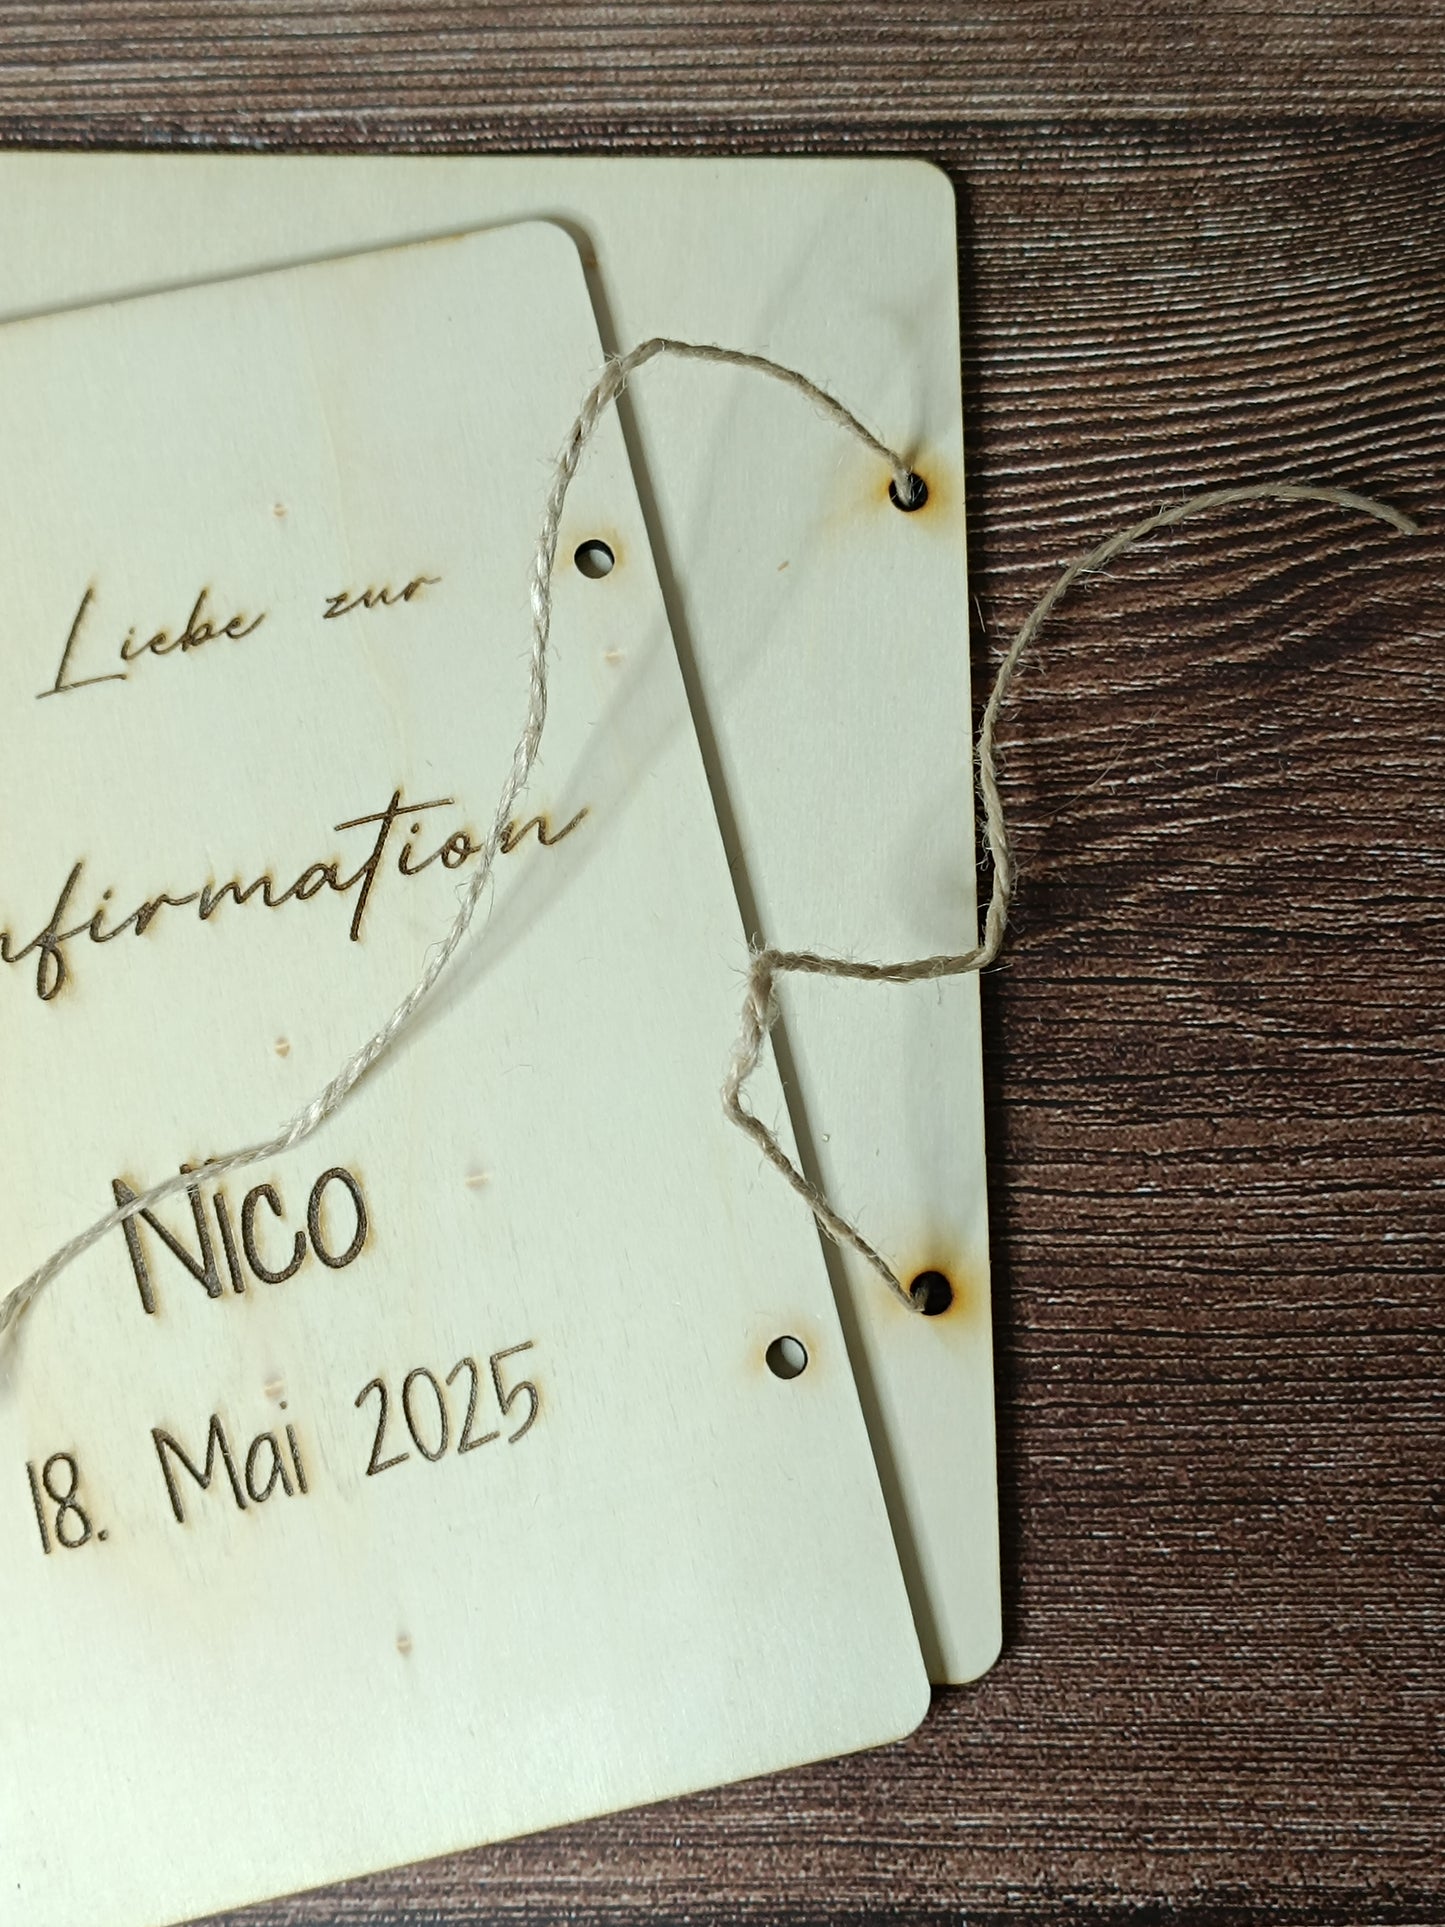 Liebe zur
nfirmation
Nico
18. Mai 2025